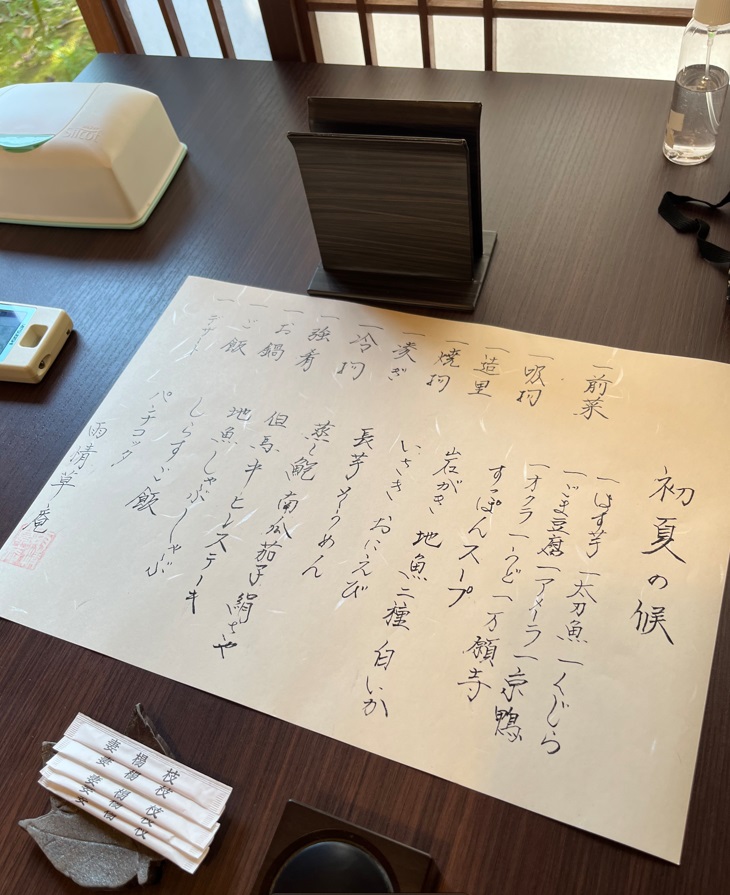 初夏の候
一前菜
一はす芋 一太刀魚 一くじら
一ごま豆腐 一アメーラ 一京鴨
一オクラ 一うど 一万願寺
一吸物 すっぽんスープ
一造里 岩がき 地魚二種 白いか
一焼物 いさき おにえび
一凌ぎ 長芋そうめん
一冷物 蒸し鮑 南瓜 茄子 絹さや
一強肴 但馬牛ヒレステーキ
一お鍋 地魚しゃぶしゃぶ
一ご飯 しらすご飯
一デザート パンナコッタ
雨情草庵
妻楊枝
妻楊枝
妻楊枝
妻楊枝